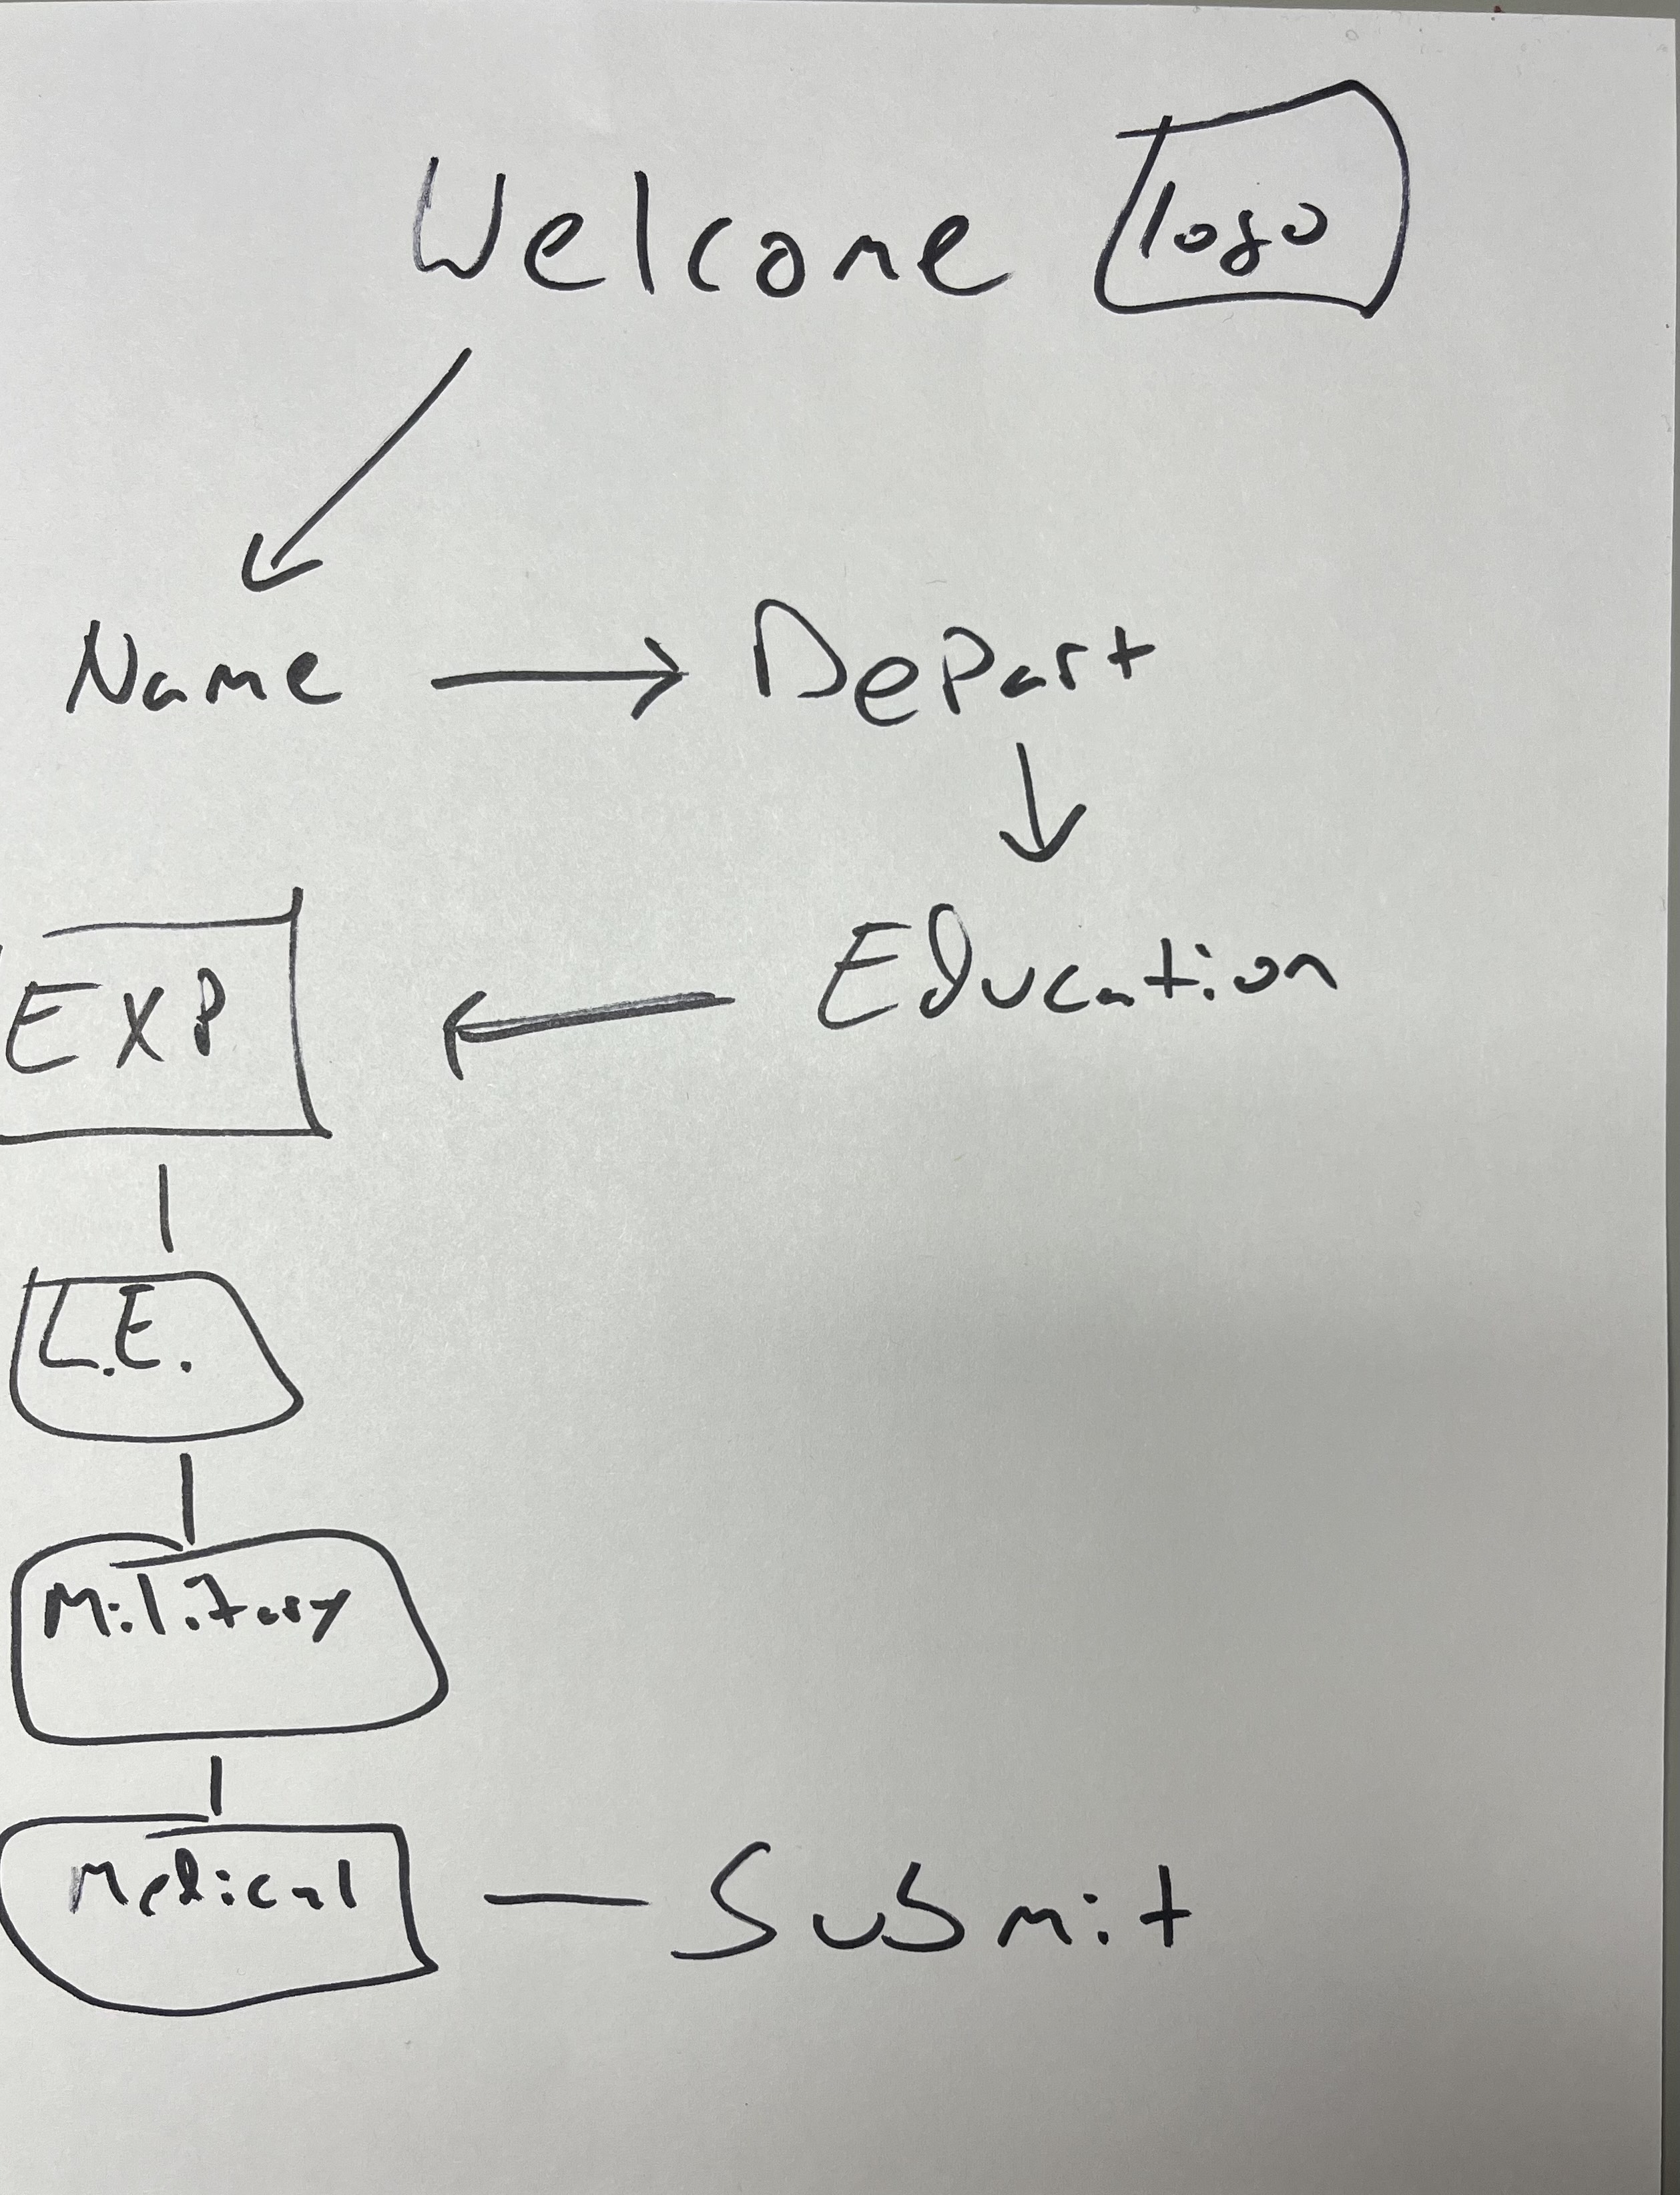 Welcome logo
Name Depart
Education
EXP
L.E.
Military
Medical Submit